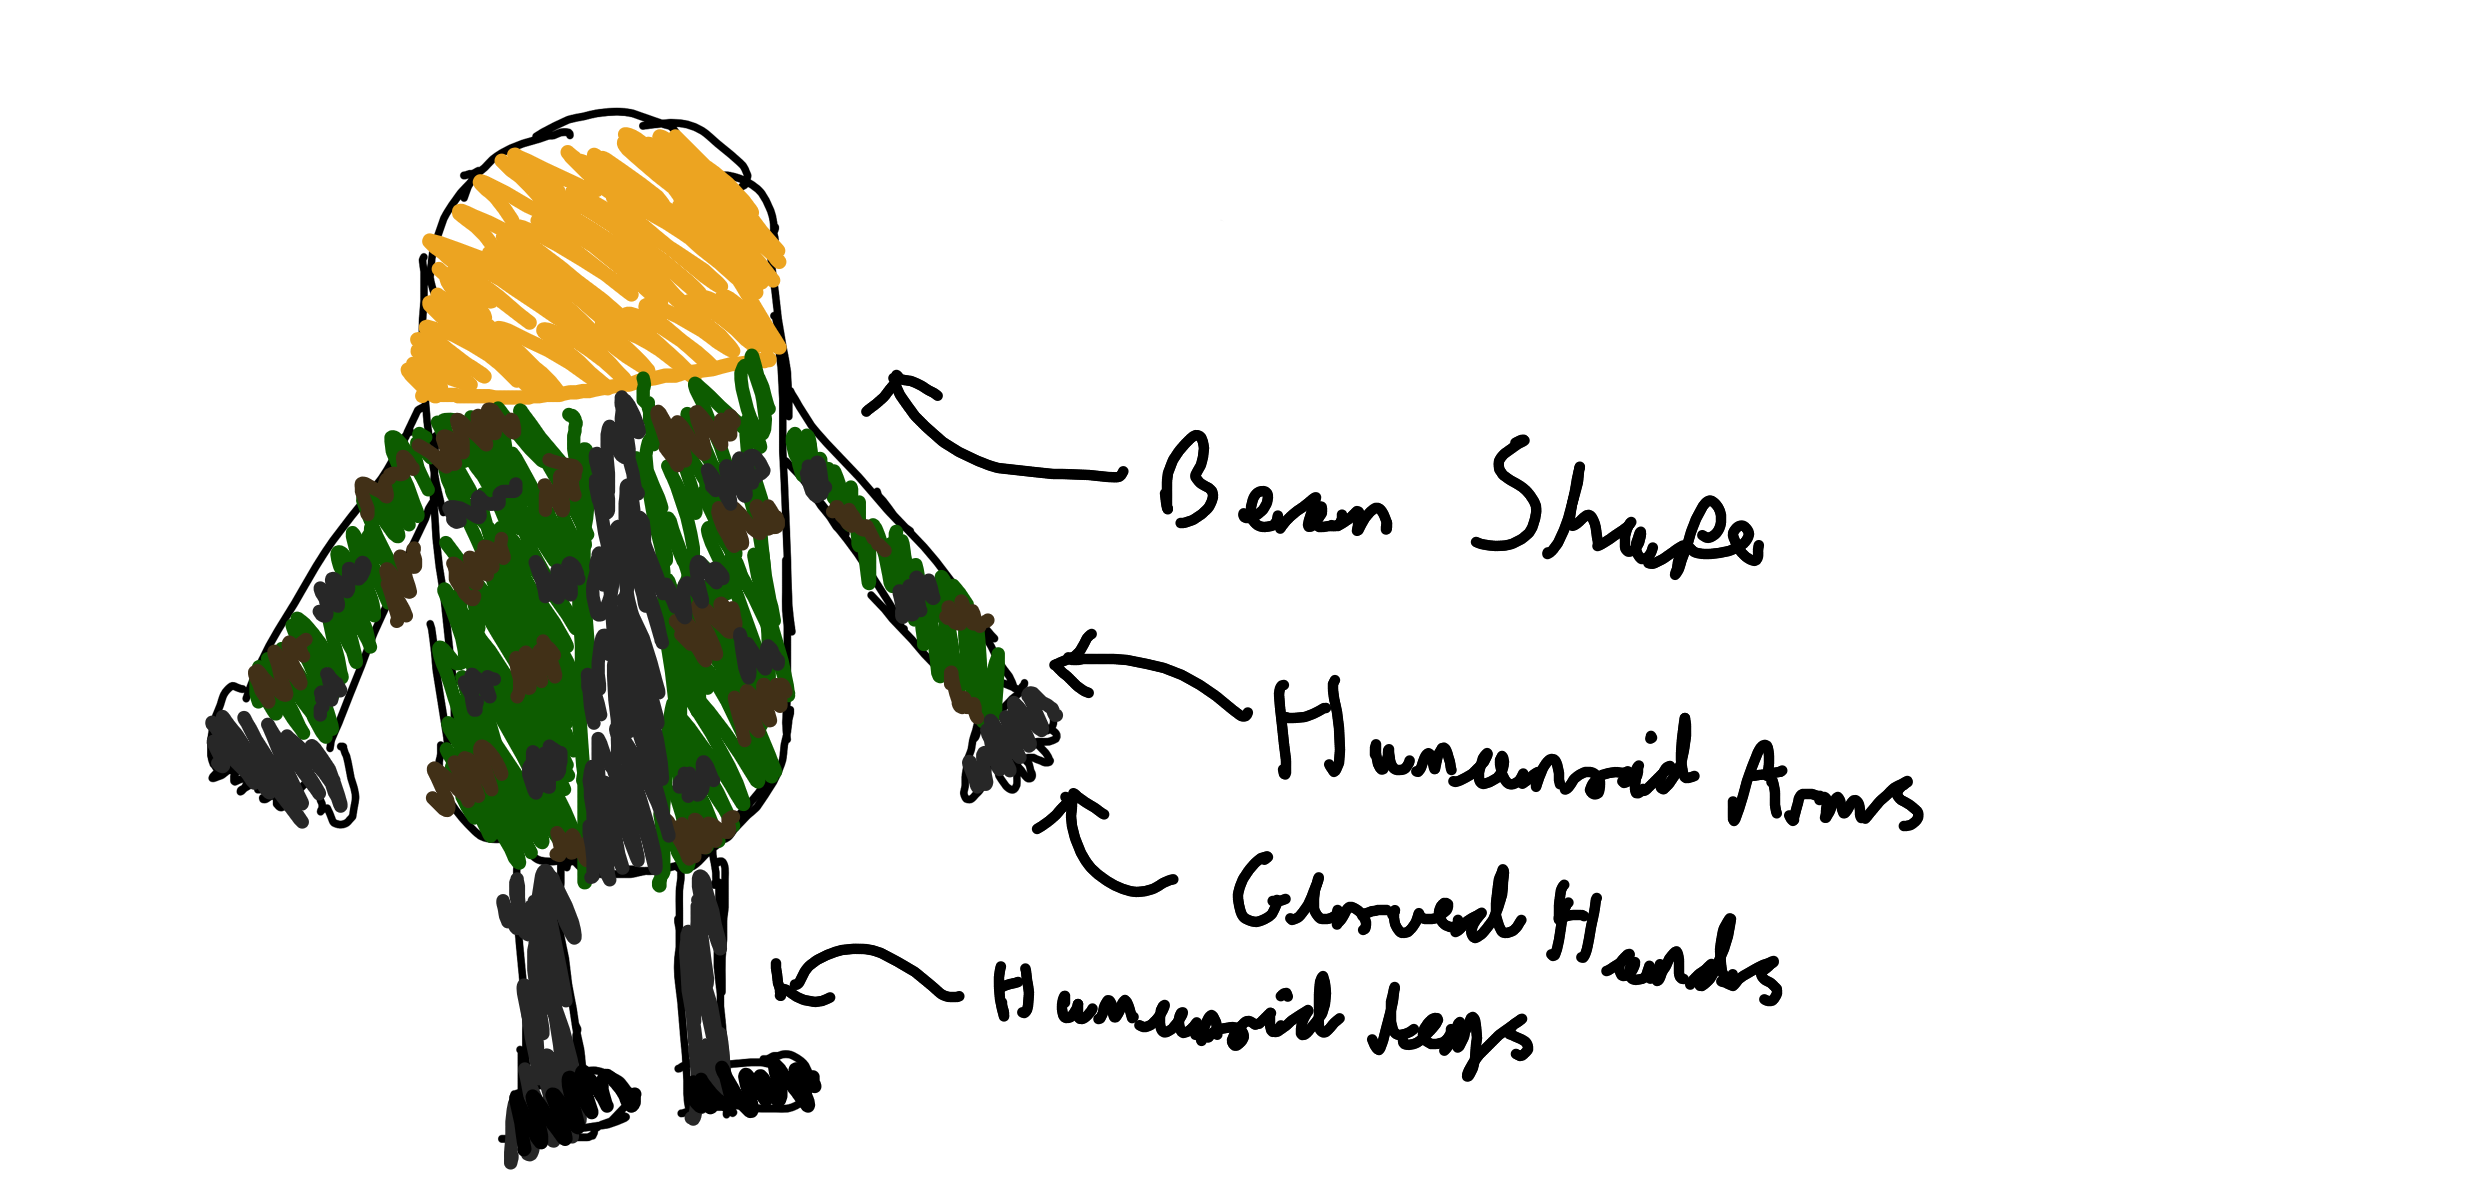 Bean Shape
Humanoid Arms
Gloved Hands
Humanoid Legs